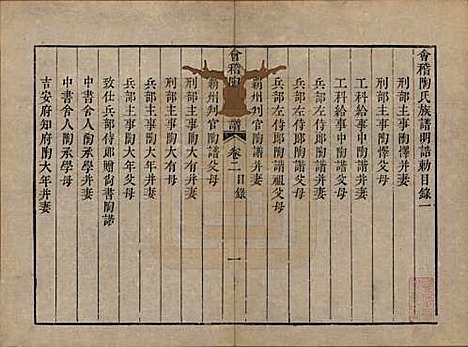 會稽陶氏族譜明誥勅目錄一
刑部主事陶懌父母
刑部主事陶懌并妻
工科給事中陶諧父母
工科給事中陶諧并妻
兵部左侍郎陶諧祖父母
兵部左侍郎陶諧父母
兵部左侍郎陶諧并妻
霸州判官陶諧并妻
會稽陶 譜 卷二 目錄 一
霸州判官陶諧父母
刑部主事陶大有并妻
刑部主事陶大有母
兵部主事陶大年并妻
兵部主事陶大年父母
致仕兵部侍郎贈尚書陶諧
中書舍人陶承學母
中書舍人陶承學并妻
吉安府知府陶大年并妻